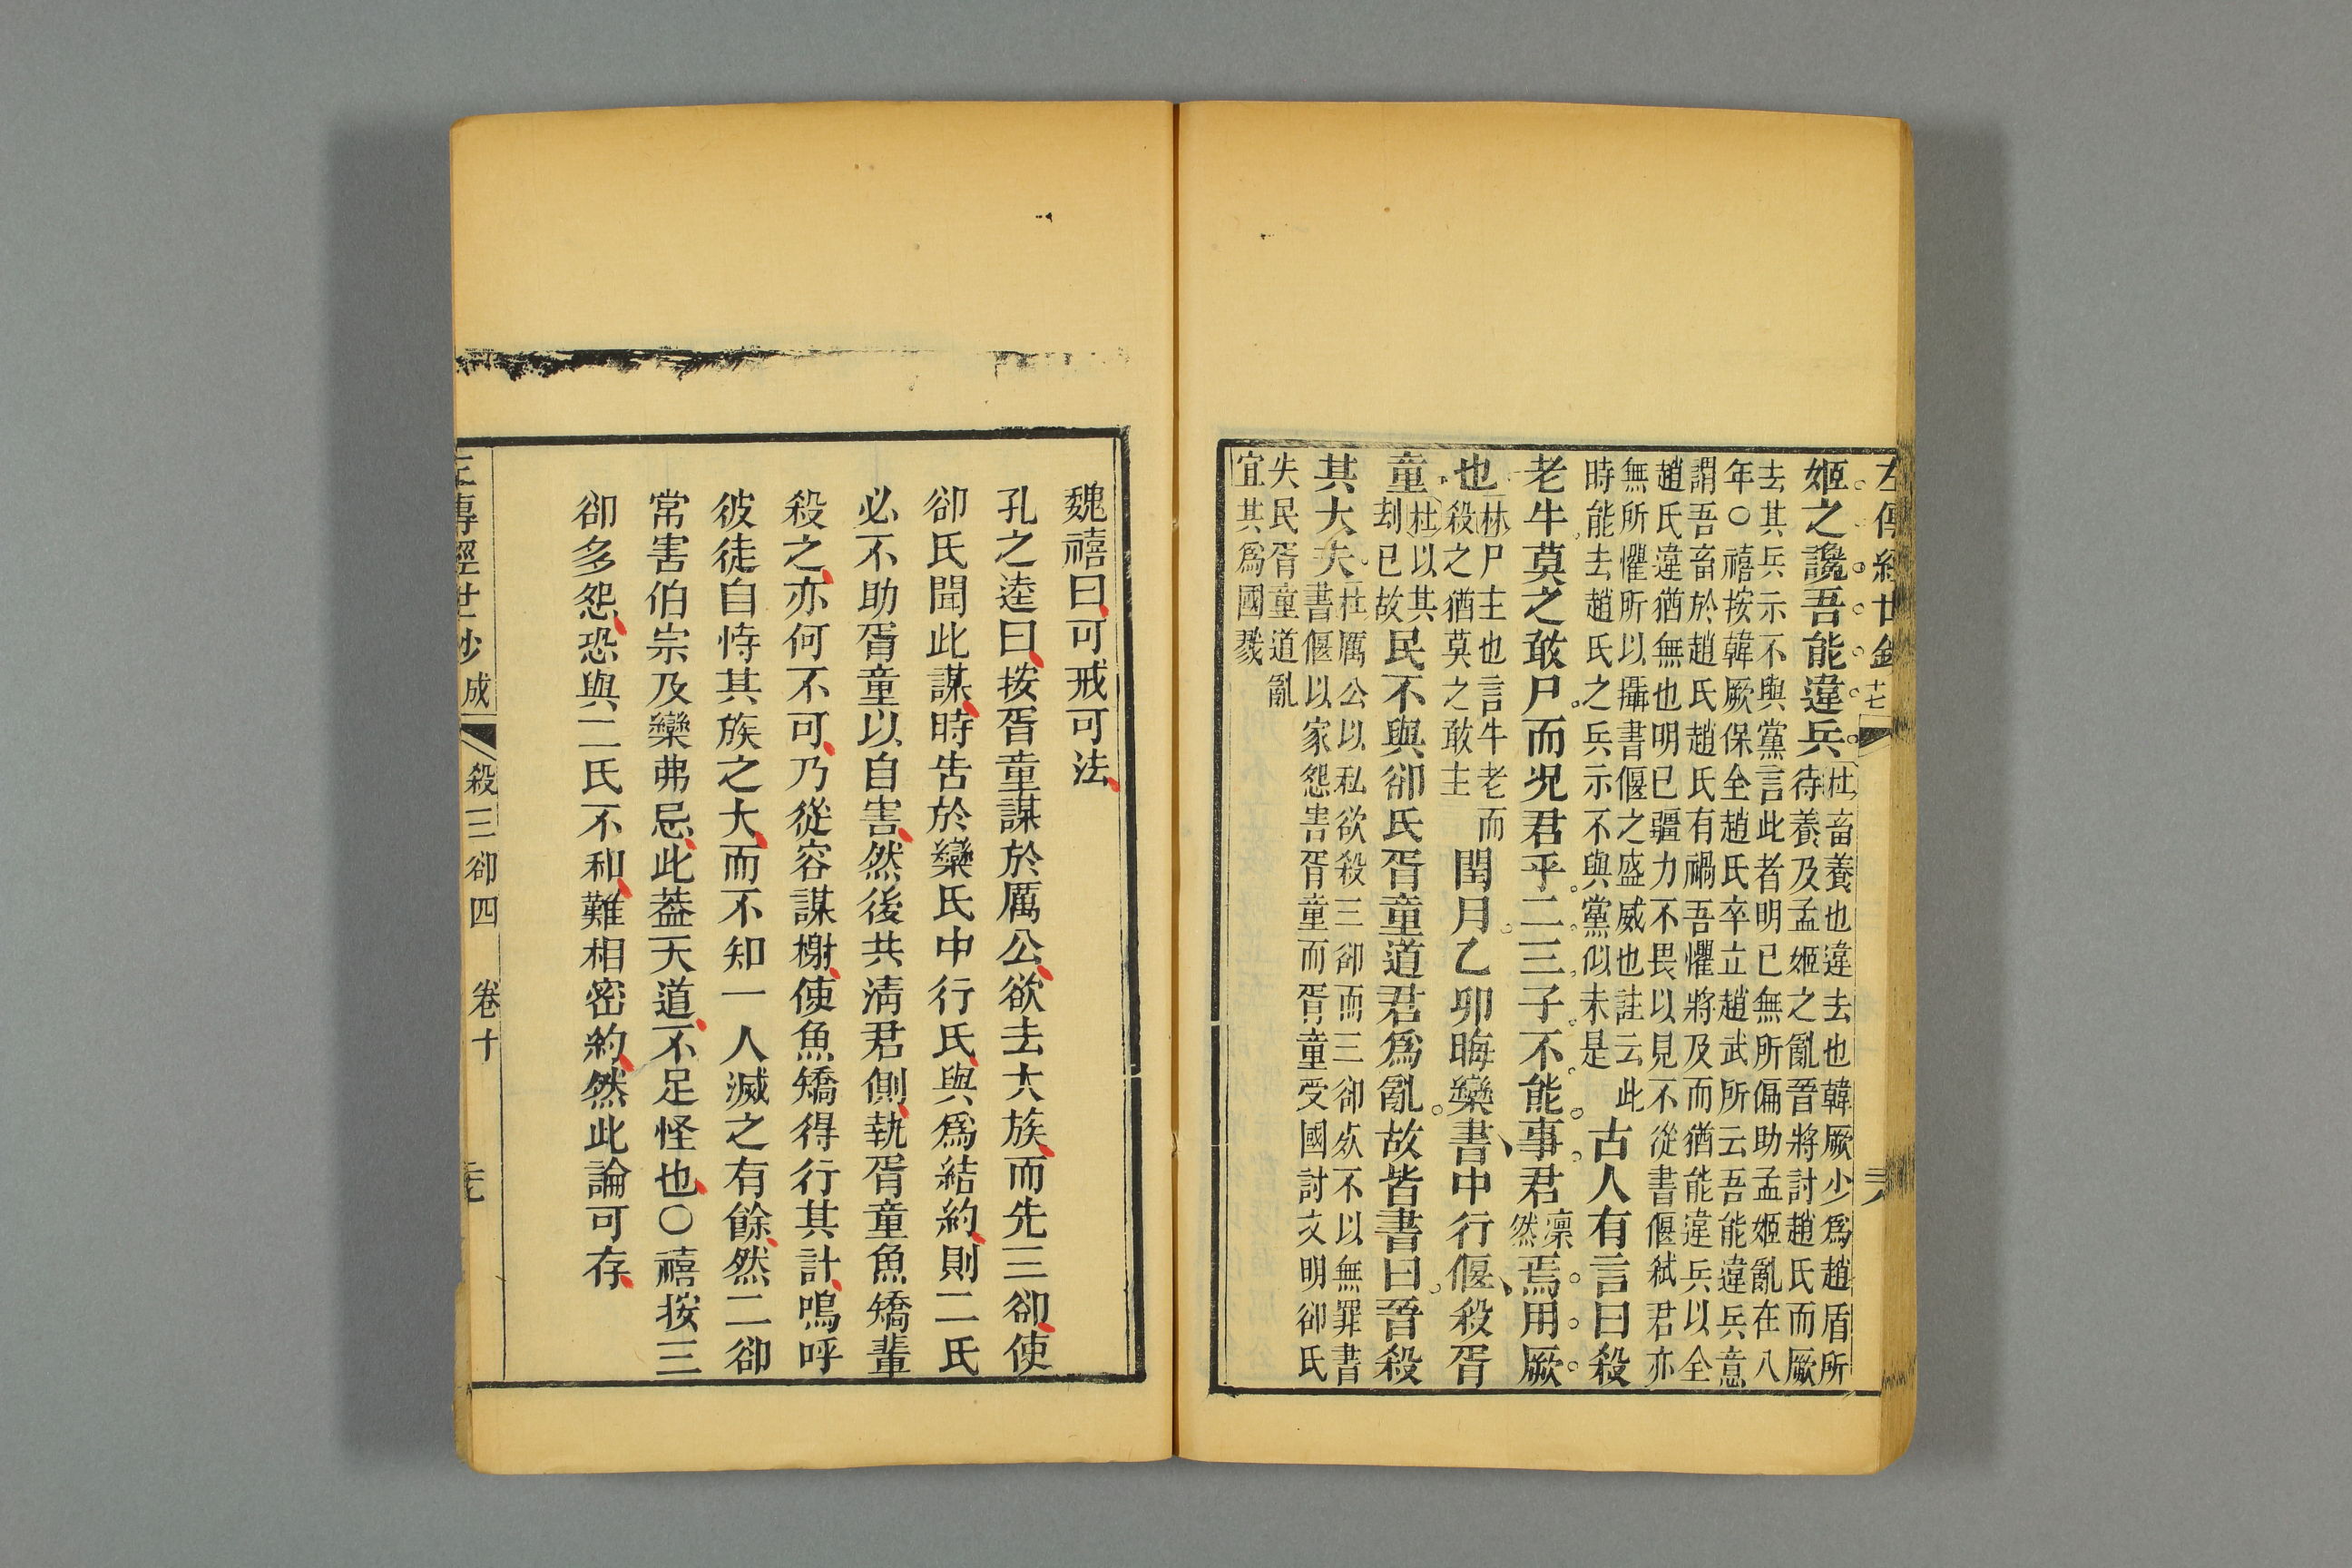 左傳經世鈔 十七
姬之讒吾能違兵杜畜養也違去也韓厥少爲趙盾所
待養及孟姬之亂晉將討趙氏而厥
去其兵示不與黨言此者明已無所偏助孟姬亂在八
年○禧按韓厥保全趙氏卒立趙武所云吾能違兵意
謂吾畜於趙氏趙氏有禍吾懼將及而猶能違兵以全
趙氏違猶無也明已疆力不畏以見不從書偃弑君亦
無所懼所以攝書偃之盛威也註云此
時能去趙氏之兵示不與黨似未是古人有言曰殺
老牛莫之敢尸而況君乎二三子不能事君凜然焉用厥
也林尸主也言牛老而
殺之猶莫之敢主閏月乙卯晦欒書中行偃殺胥
童杜以其
刦已故民不與卻氏胥童道君爲亂故皆書曰晉殺
其大夫杜厲公以私欲殺三卻而三卻死不以無罪書
書偃以家怨害胥童而胥童受國討文明卻氏
失民胥童道亂
宜其爲國戮
魏禧曰可戒可法
孔之逵曰按胥童謀於厲公欲去大族而先三卻使
卻氏聞此謀時告於欒氏中行氏與爲結約則二氏
必不助胥童以自害然後共清君側執胥童魚矯輩
殺之亦何不可乃從容謀榭使魚矯得行其計嗚呼
彼徒自恃其族之大而不知一人滅之有餘然二卻
常害伯宗及欒弗忌此葢天道不足怪也○禧按三
卻多怨恐與二氏不和難相密約然此論可存
左傳經世鈔 成 殺三卻四 卷十